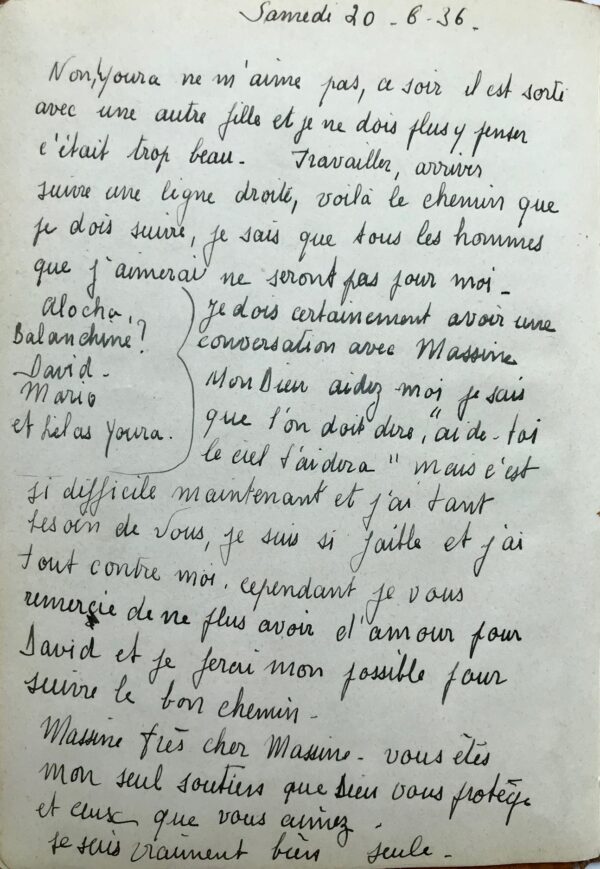 Samedi 20 - 6 - 36 -
Non, Youra ne m'aime pas, ce soir il est sorti
avec une autre fille et je ne dois plus y penser
c'était trop beau - Travailler, arriver
suivre une ligne droite, voilà le chemin que
je dois suivre, je sais que tous les hommes
que j'aimerai ne seront pas pour moi -
Alocha,
Balanchine?
David -
Mario
et hélas Youra.
Je dois certainement avoir une
conversation avec Massine
Mon Dieu aidez moi je sais
que l'on doit dire, "aide-toi
le ciel t'aidera" mais c'est
si difficile maintenant et j'ai tant
besoin de Vous, je suis si faible et j'ai
tout contre moi. cependant je vous
remercie de ne plus avoir d'amour pour
David et je ferai mon possible pour
suivre le bon chemin -
Massine très cher Massine - vous êtes
mon seul soutien que Dieu vous protège
et ceux que vous aimez.
Je suis vraiment bien seule -